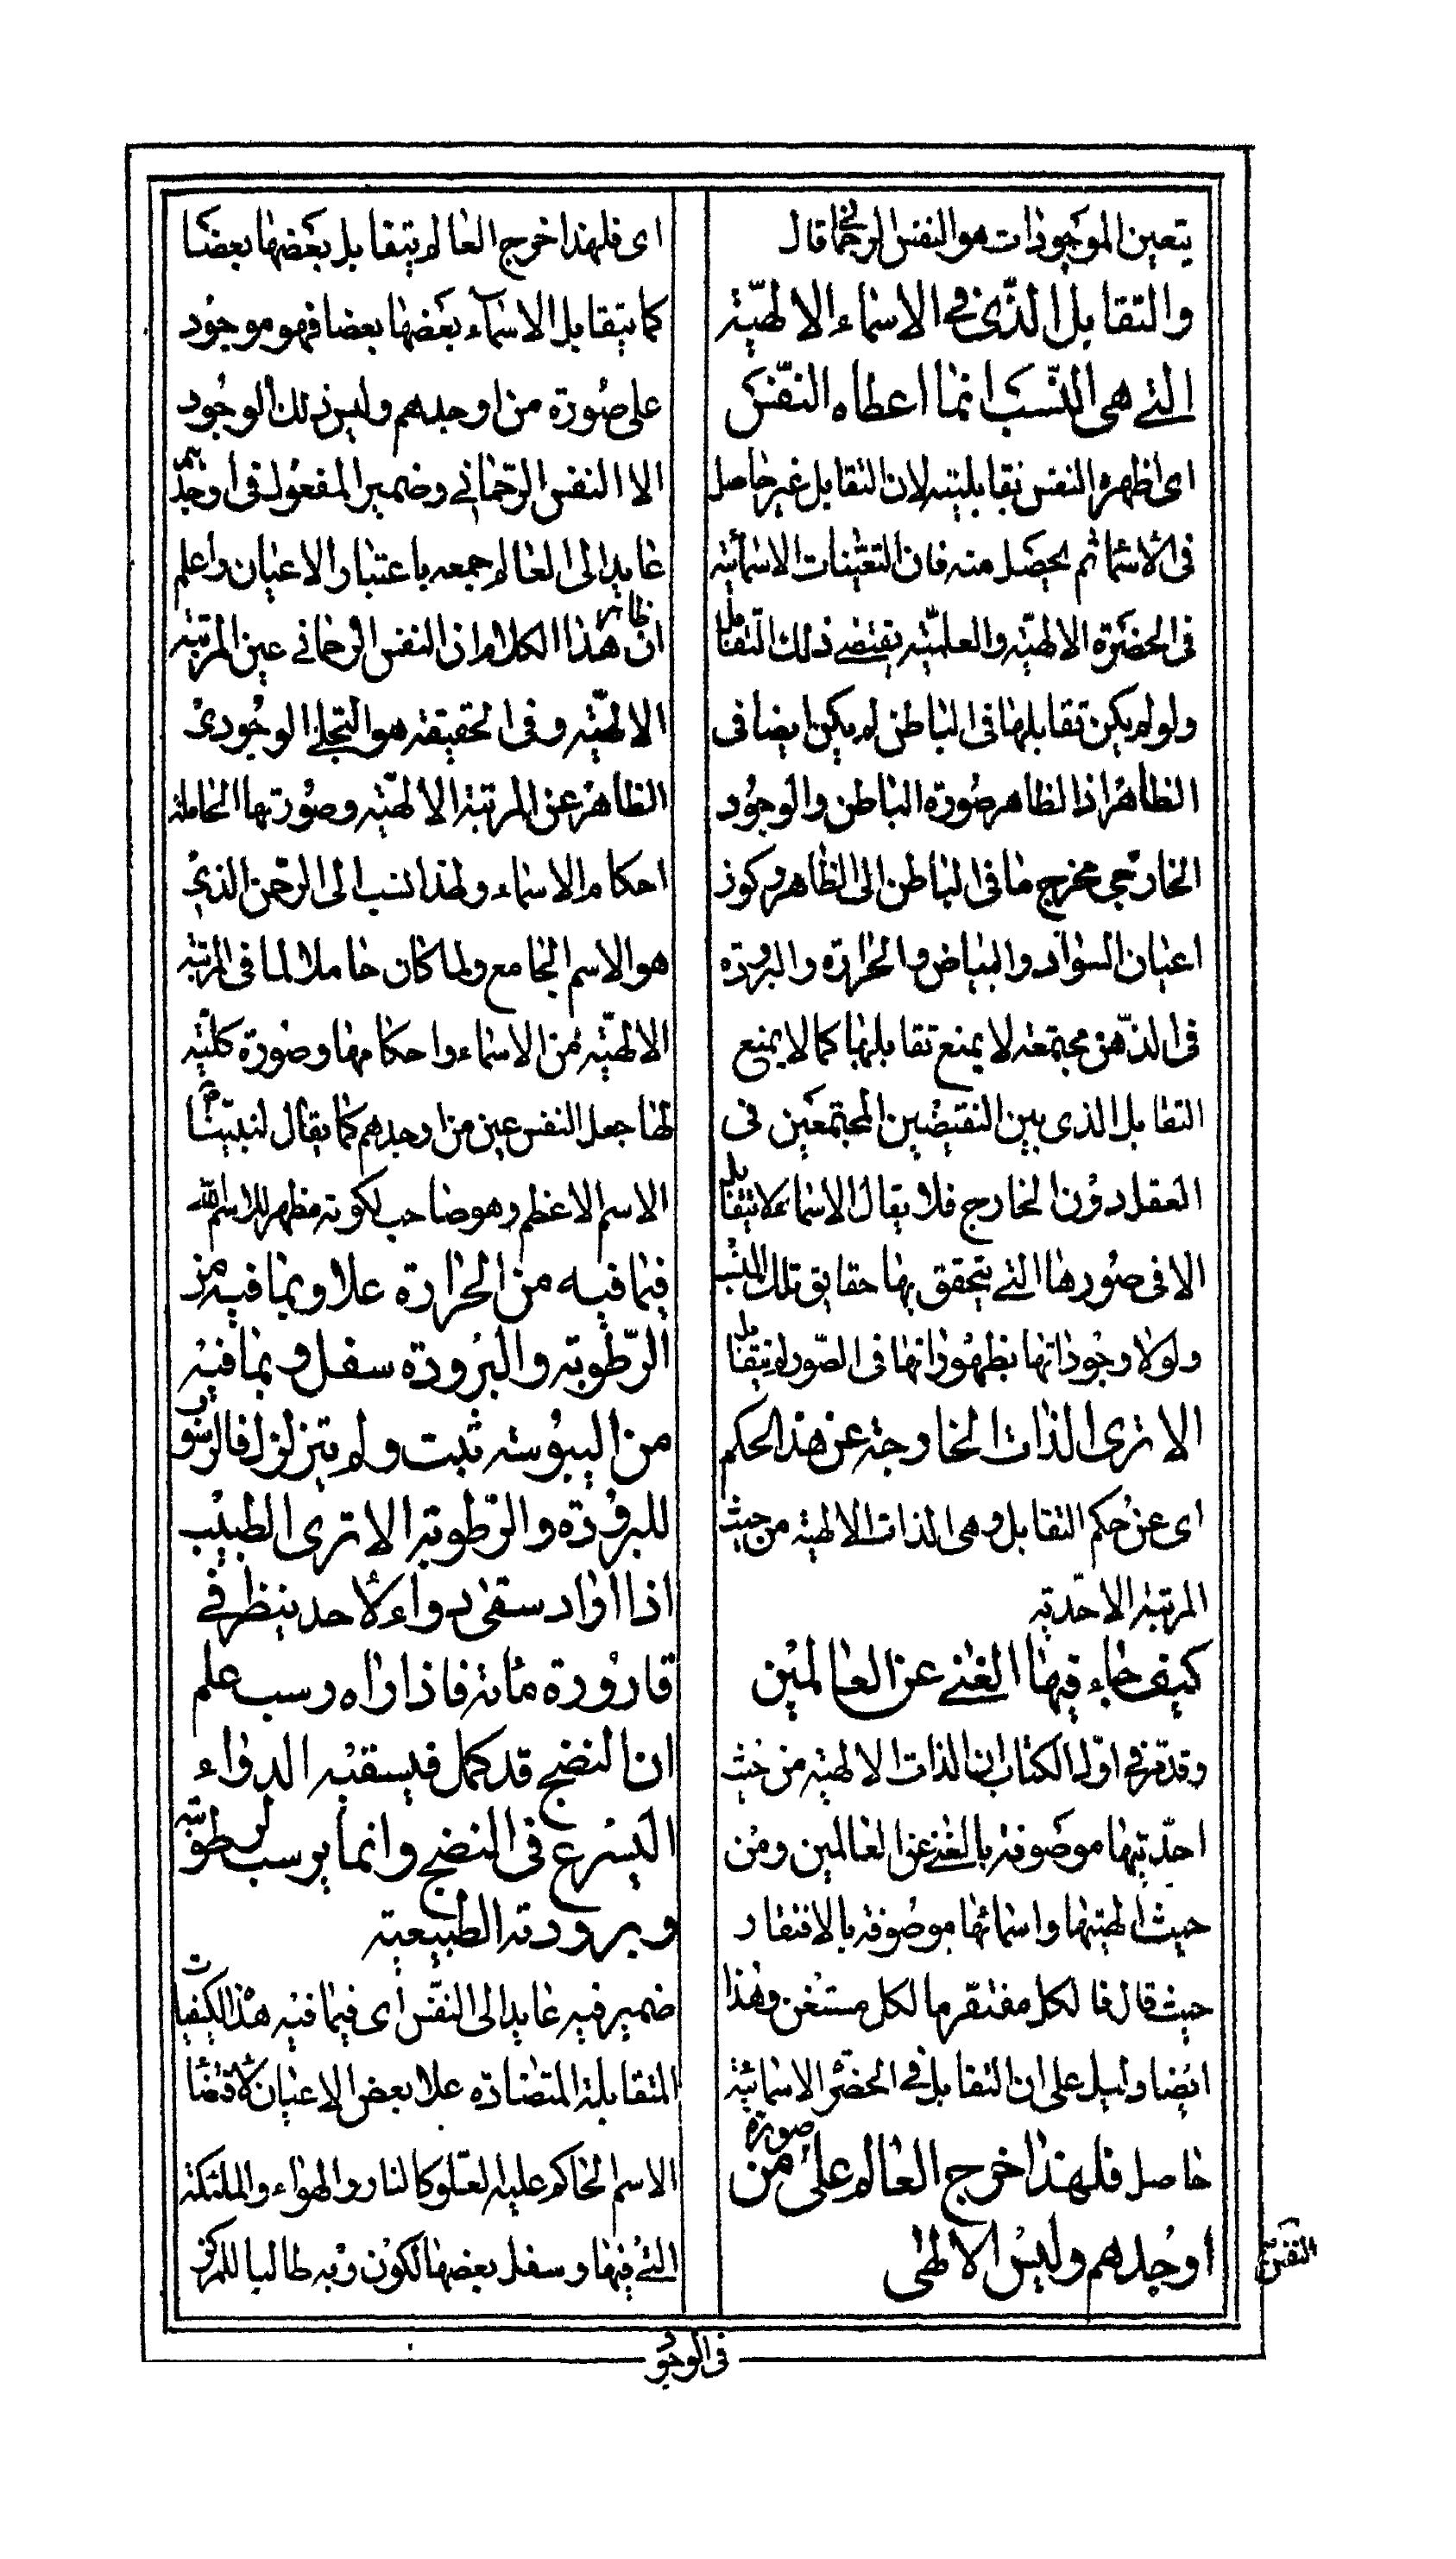 يتعين الموجودات هو النفس الرحمانى قال
والتقابل الذى فى الاسماء الالهية
التى هى النسب انما اعطاه النفس
اى اظهره النفس بقابليته لان التقابل غير حاصل
فى الاسماء ثم يحصل منه فان التعينات الاسمائيه
فى الحضرة الالهيه والعلميه يقتضى ذلك التقابل
ولو لم يكن تقابلها فى الباطن لم يكن ايضا فى
الظاهر اذ الظاهر صورة الباطن والوجود
الخارجى مخرج ما فى الباطن الى الظاهر وكون
اعيان السواد والبياض والحرارة والبرودة
فى الذهن مجتمعه لا يمنع تقابلها كما لا يمنع
التقابل الذى بين النقيضين المجتمعين فى
العقل دون الخارج فلا يقال الاسماء لا تتقابل
الا فى صورها التى يتحقق بها حقايق تلك النسب
ولولا وجوداتها بظهوراتها فى الصور لم تتقابل
الا ترى الذات الخارجة عن هذا الحكم
اى عن حكم التقابل وهى الذات الالهية من حيث
المرتبة الاحدية
كيف جاء فيها الغنى عن العالمين
وقد مر فى اول الكتاب ان الذات الالهية من حيث
احديتها موصوفة بالغنى عن العالمين ومن
حيث الهيتها واسمائها موصوفة بالافتقار
حيث قال فالكل مفتقر ما الكل مستغن وهذا
ايضا دليل على ان التقابل فى الحضرة الاسمائية
حاصل فلهذا خرج العالم على صورة من
اوجدهم وليس الا لهى
النفس
اى فلهذا خرج العالم يتقابل بعضها بعضا
كما يتقابل الاسماء بعضها بعضا فهو موجود
على صورة من اوجدهم وليس ذلك الوجود
الا النفس الرحمانى وضمير المفعول فى اوجدهم
عايد الى العالم جمعه باعتبار الاعيان واعلم
ان ظاهر هذا الكلام ان النفس الرحمانى عين المرتبة
الالهيه وفى الحقيقة هو التجلى الوجودى
الظاهر عن المرتبة الالهيه وصورتها الحاملة
احكام الاسماء ولهذا نسب الى الرحمن الذى
هو الاسم الجامع ولما كان حاملا لما فى المرتبة
الالهيه من الاسماء واحكامها وصورة كليه
لها جعل النفس عين من اوجدهم كما يقال لنبينا
الاسم الاعظم وهو صاحب لكونه مظهرا للاسم الله
فبما فيه من الحرارة علا وبما فيه من
الرطوبة والبرودة سفل وبما فيه
من اليبوسة ثبت ولم يتزلزل فالرسوب
للبرودة والرطوبة الا ترى الطبيب
اذا اراد سقى دواء لاحد ينظر فى
قارورة مائه فاذا راه رسب علم
ان النضج قد كمل فيسقيه الدواء
ليسرع فى النضج وانما يرسب لرطوبته
وبرودته الطبيعية
ضمير فيه عايد الى النفس اى فبما فيه هذه الكيفيات
المتقابلة المتضادة علا بعض الاعيان لاقتضاء
الاسم الحاكم عليه العلو كالنار والهواء والملئكة
التى فيها وسفل بعضها لكون ربه طالبا للمركز
فى الوجود